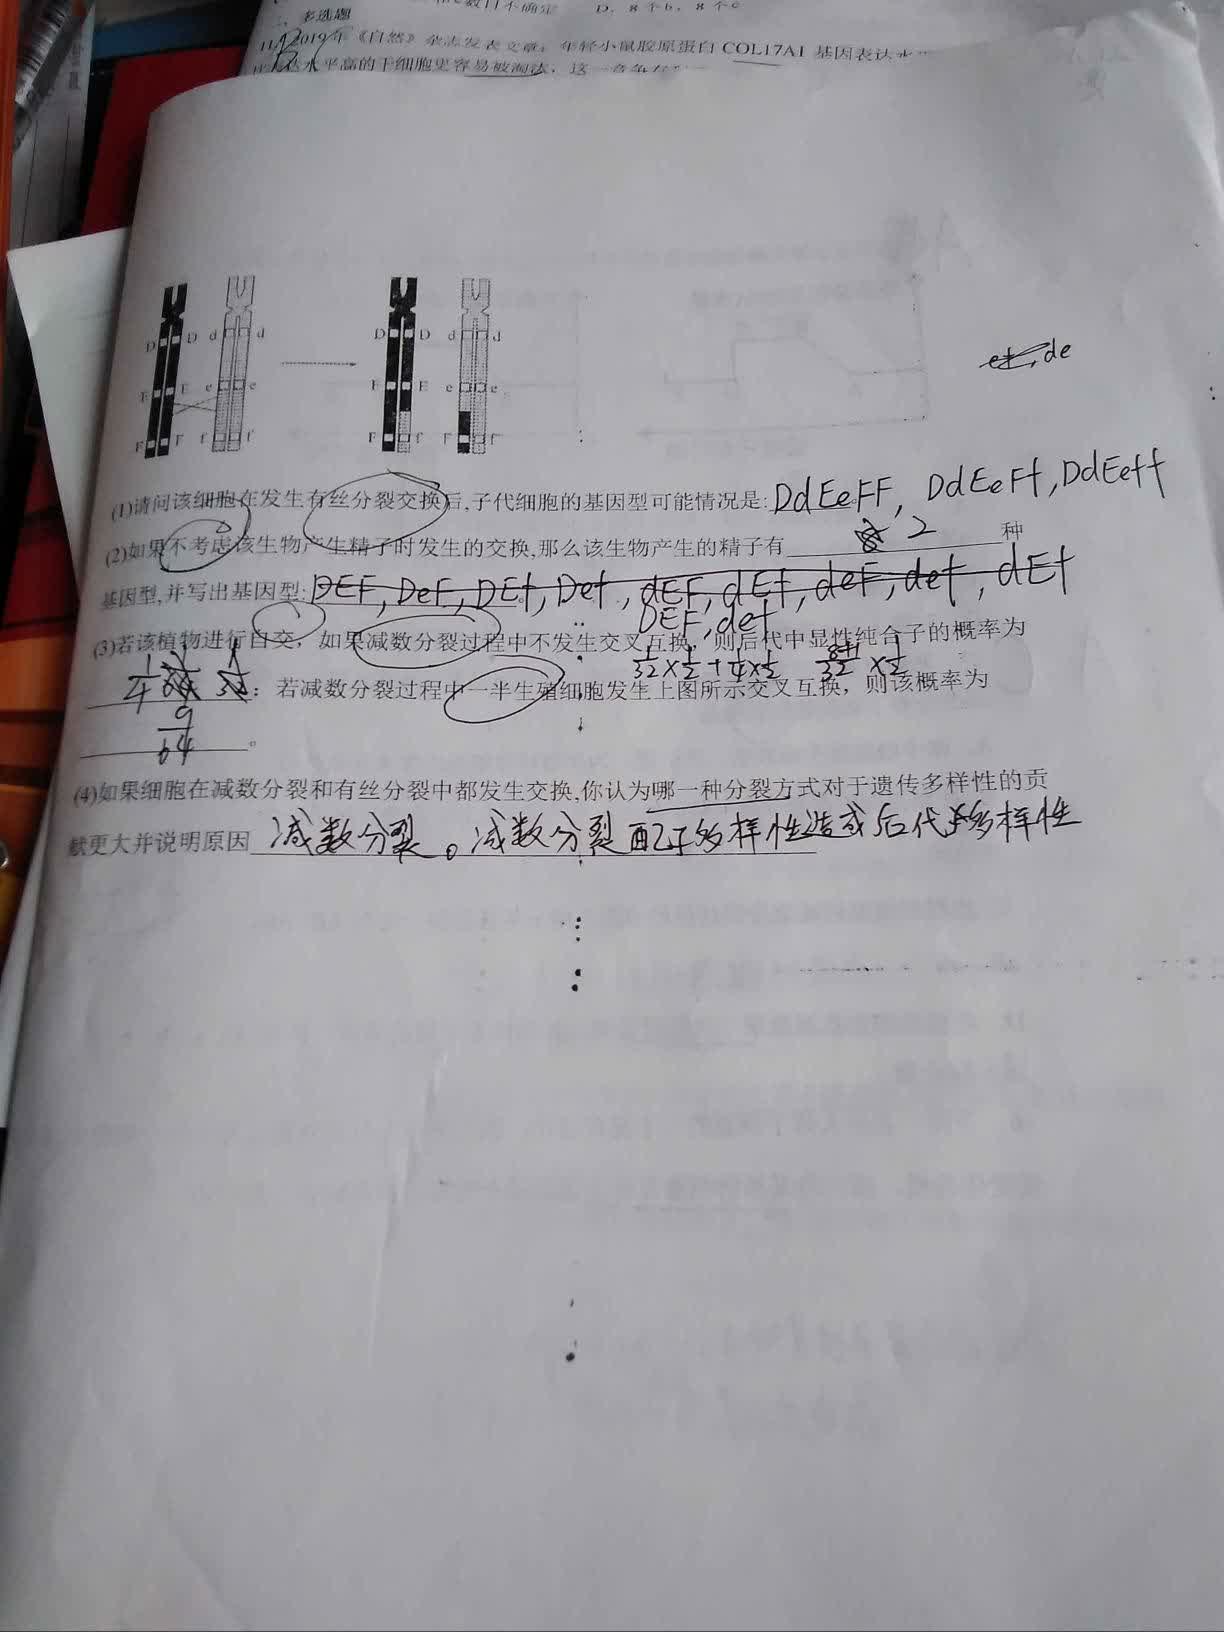 数目不确定 D. 8个b, 8个c
二、多选题
2019年《自然》杂志发表文章:年轻小鼠胶原蛋白COL17A1 基因表达水
达水平高的干细胞更容易被淘汰,这一竞争
D D d d D D d d
E E e e E E e e
F F f f F f F f
de
(1)请问该细胞在发生有丝分裂交换后,子代细胞的基因型可能情况是: DdEeFF, DdEeFf, DdEeff
(2)如果不考虑该生物产生精子时发生的交换,那么该生物产生的精子有 2 种
基因型,并写出基因型: DEF, DeF, DEf, Def, dEF, dEf, deF, def, dEf
DEF, def
(3)若该植物进行自交,如果减数分裂过程中不发生交叉互换,则后代中显性纯合子的概率为
1/32×1/2+1/4×1/2 8+1/32×1/2
1/4 1/64 1/32 ;若减数分裂过程中一半生殖细胞发生上图所示交叉互换,则该概率为
9/64 。
(4)如果细胞在减数分裂和有丝分裂中都发生交换,你认为哪一种分裂方式对于遗传多样性的贡
献更大并说明原因 减数分裂。减数分裂配子多样性造成后代多样性